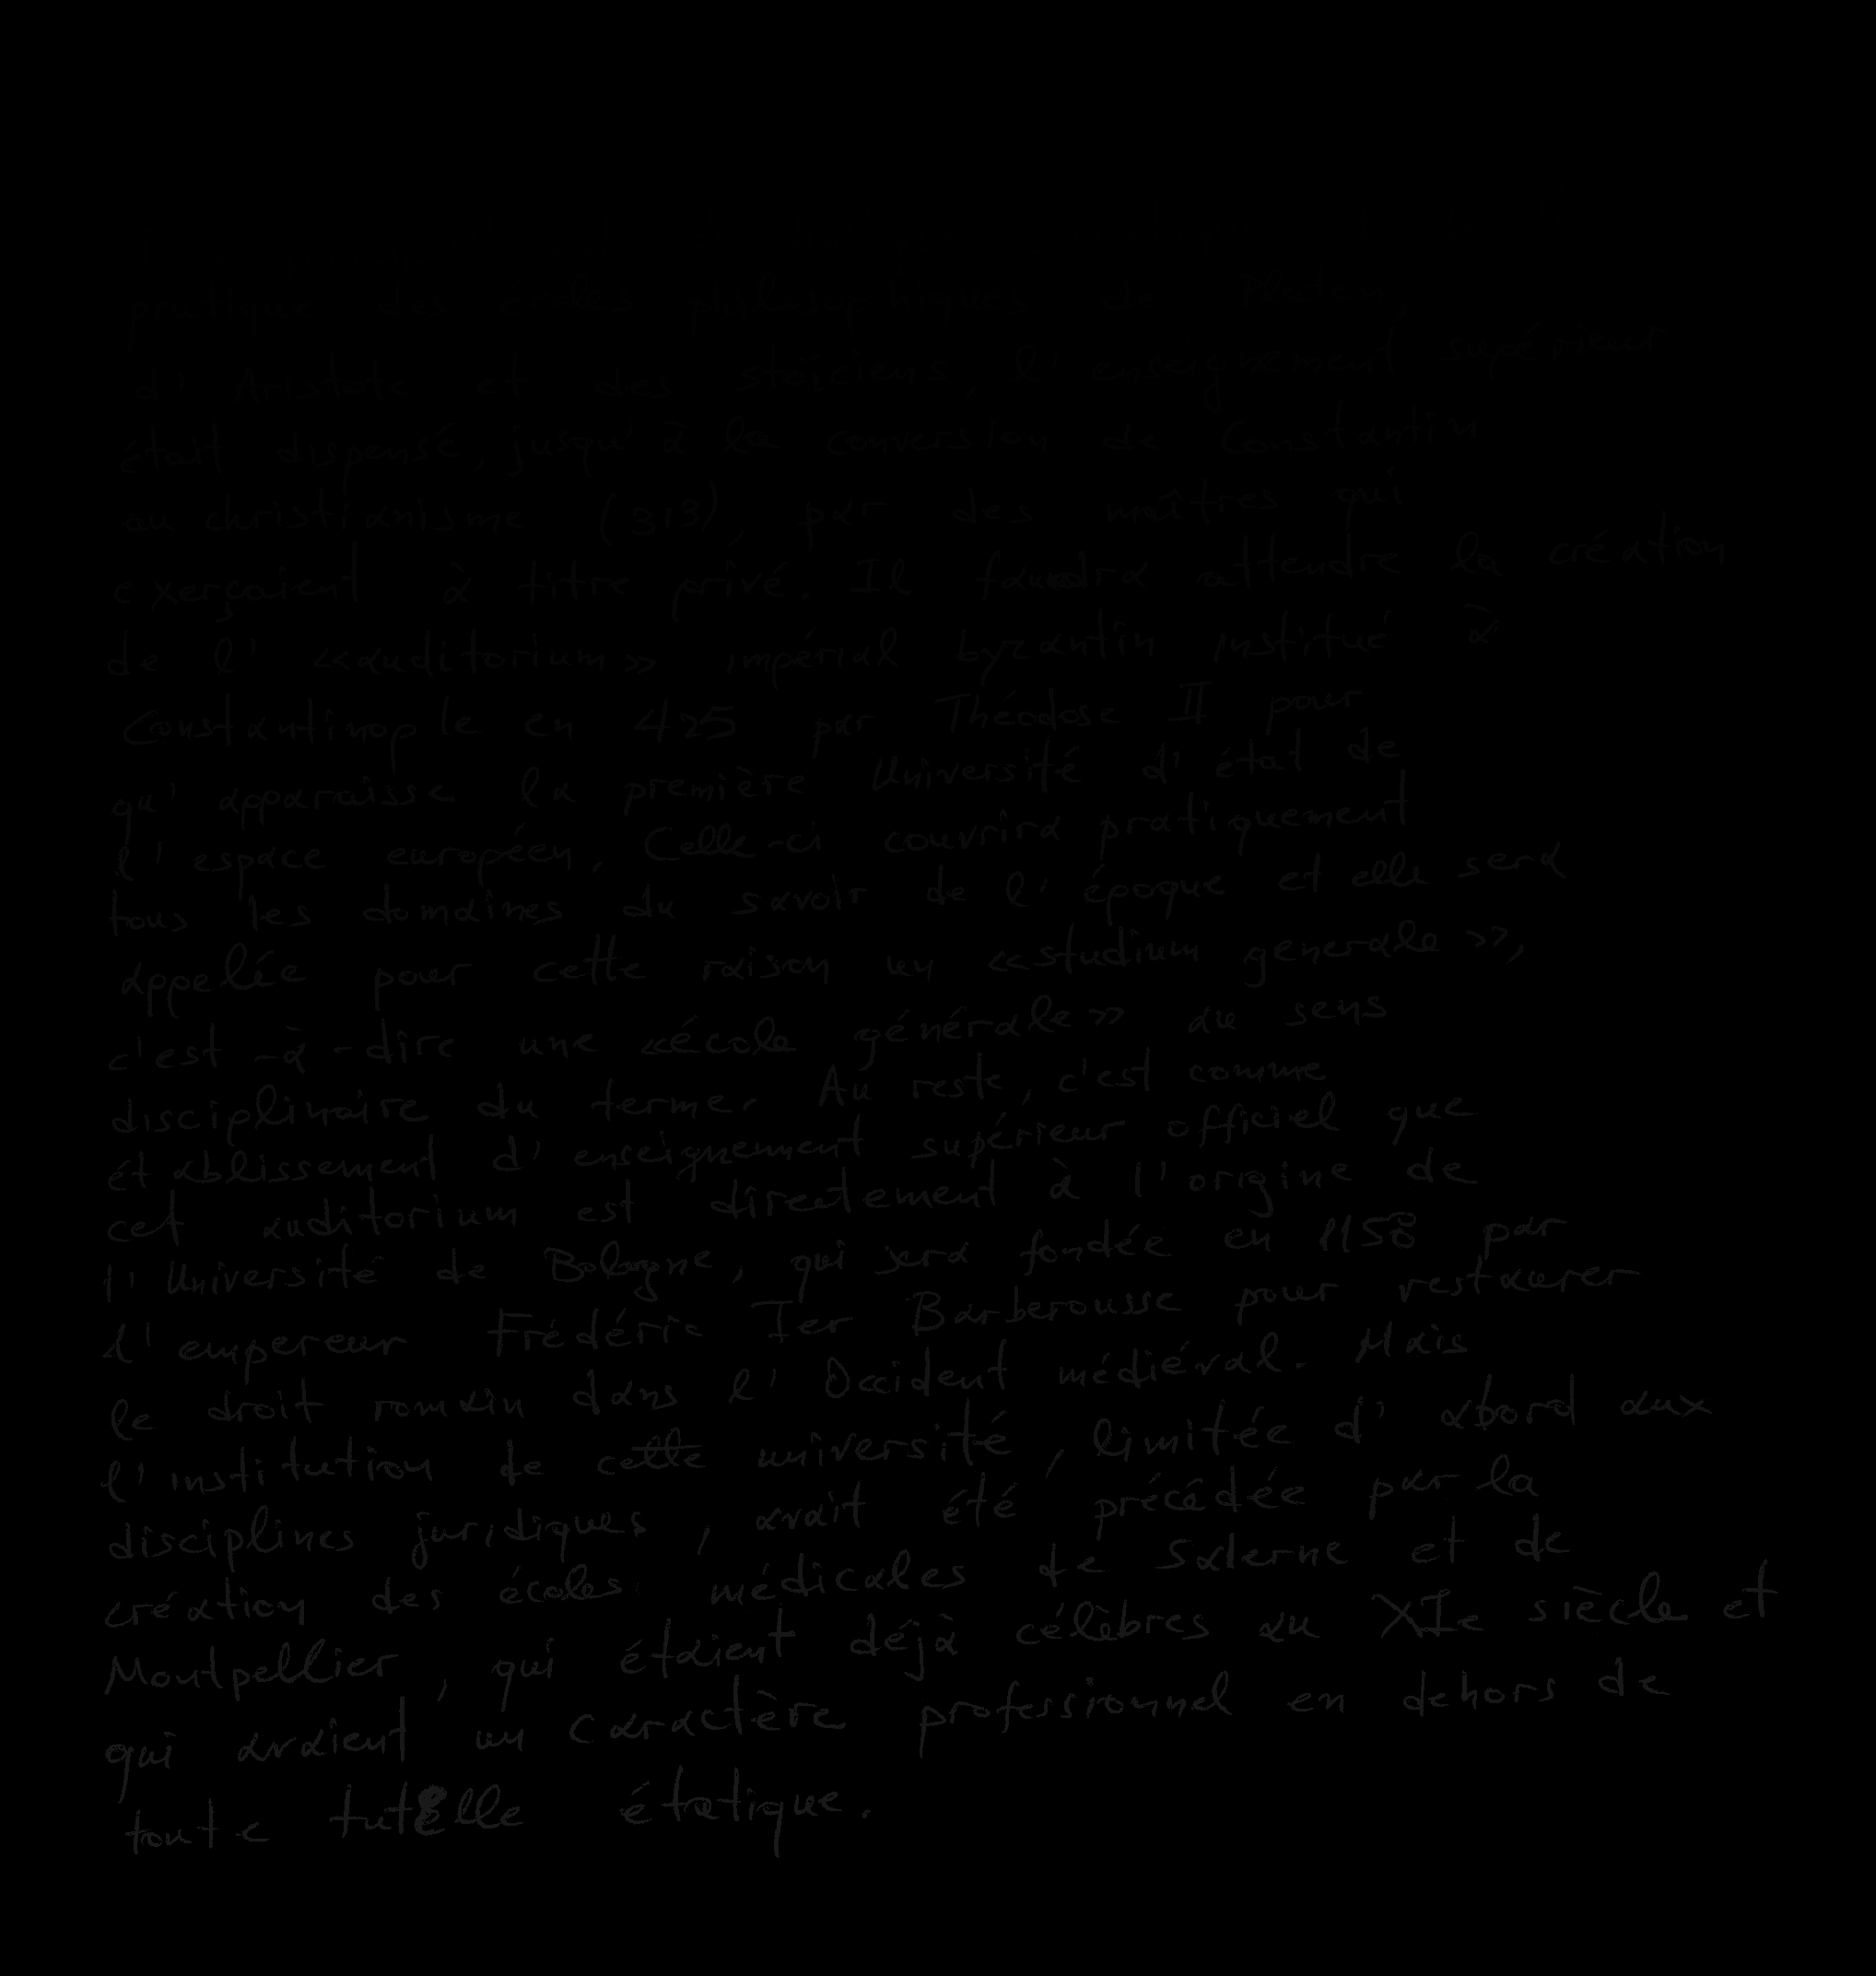 pratique des écoles philosophiques de Platon,
d'Aristote et des stoïciens, l'enseignement supérieur
était dispensé, jusqu'à la conversion de Constantin
au christianisme (313), par des maîtres qui
exerçaient à titre privé. Il faudra attendre la création
de l' «auditorium» impérial byzantin institué à
Constantinople en 425 par Théodose II pour
qu'apparaisse la première Université d'état de
l'espace européen. Celle-ci couvrira pratiquement
tous les domaines du savoir de l'époque et elle sera
appelée pour cette raison un «studium generale»,
c'est-à-dire une «école générale» au sens
disciplinaire du terme. Au reste, c'est comme
établissement d'enseignement supérieur officiel que
cet auditorium est directement à l'origine de
l'Université de Bologne, qui sera fondée en 1158 par
l'empereur Frédéric Ier Barberousse pour restaurer
le droit romain dans l'Occident médiéval. Mais
l'institution de cette université, limitée d'abord aux
disciplines juridiques, avait été précédée par la
création des écoles médicales de Salerne et de
Montpellier, qui étaient déjà célèbres au XIe siècle et
qui avaient un caractère professionnel en dehors de
toute tutelle étatique.